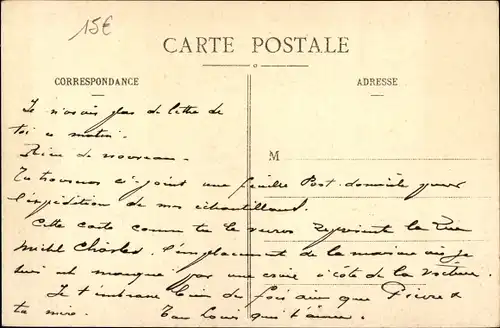 15€
CARTE POSTALE
CORRESPONDANCE
ADRESSE
M
Je n'avais pas de lettre de
toi ce matin.
Rien de nouveau.
Tu trouveras ci-joint une feuille Post-domicile pour
l'expédition de mes échantillons.
Cette carte comme tu le verras représente la Rue
Michel Charles. l'emplacement de la maison où je
suis est marqué par une croix à côté de la voiture.
Je t'embrasse bien de fois ainsi que Pierre &
ta mère. Ton Louis qui t'aime.